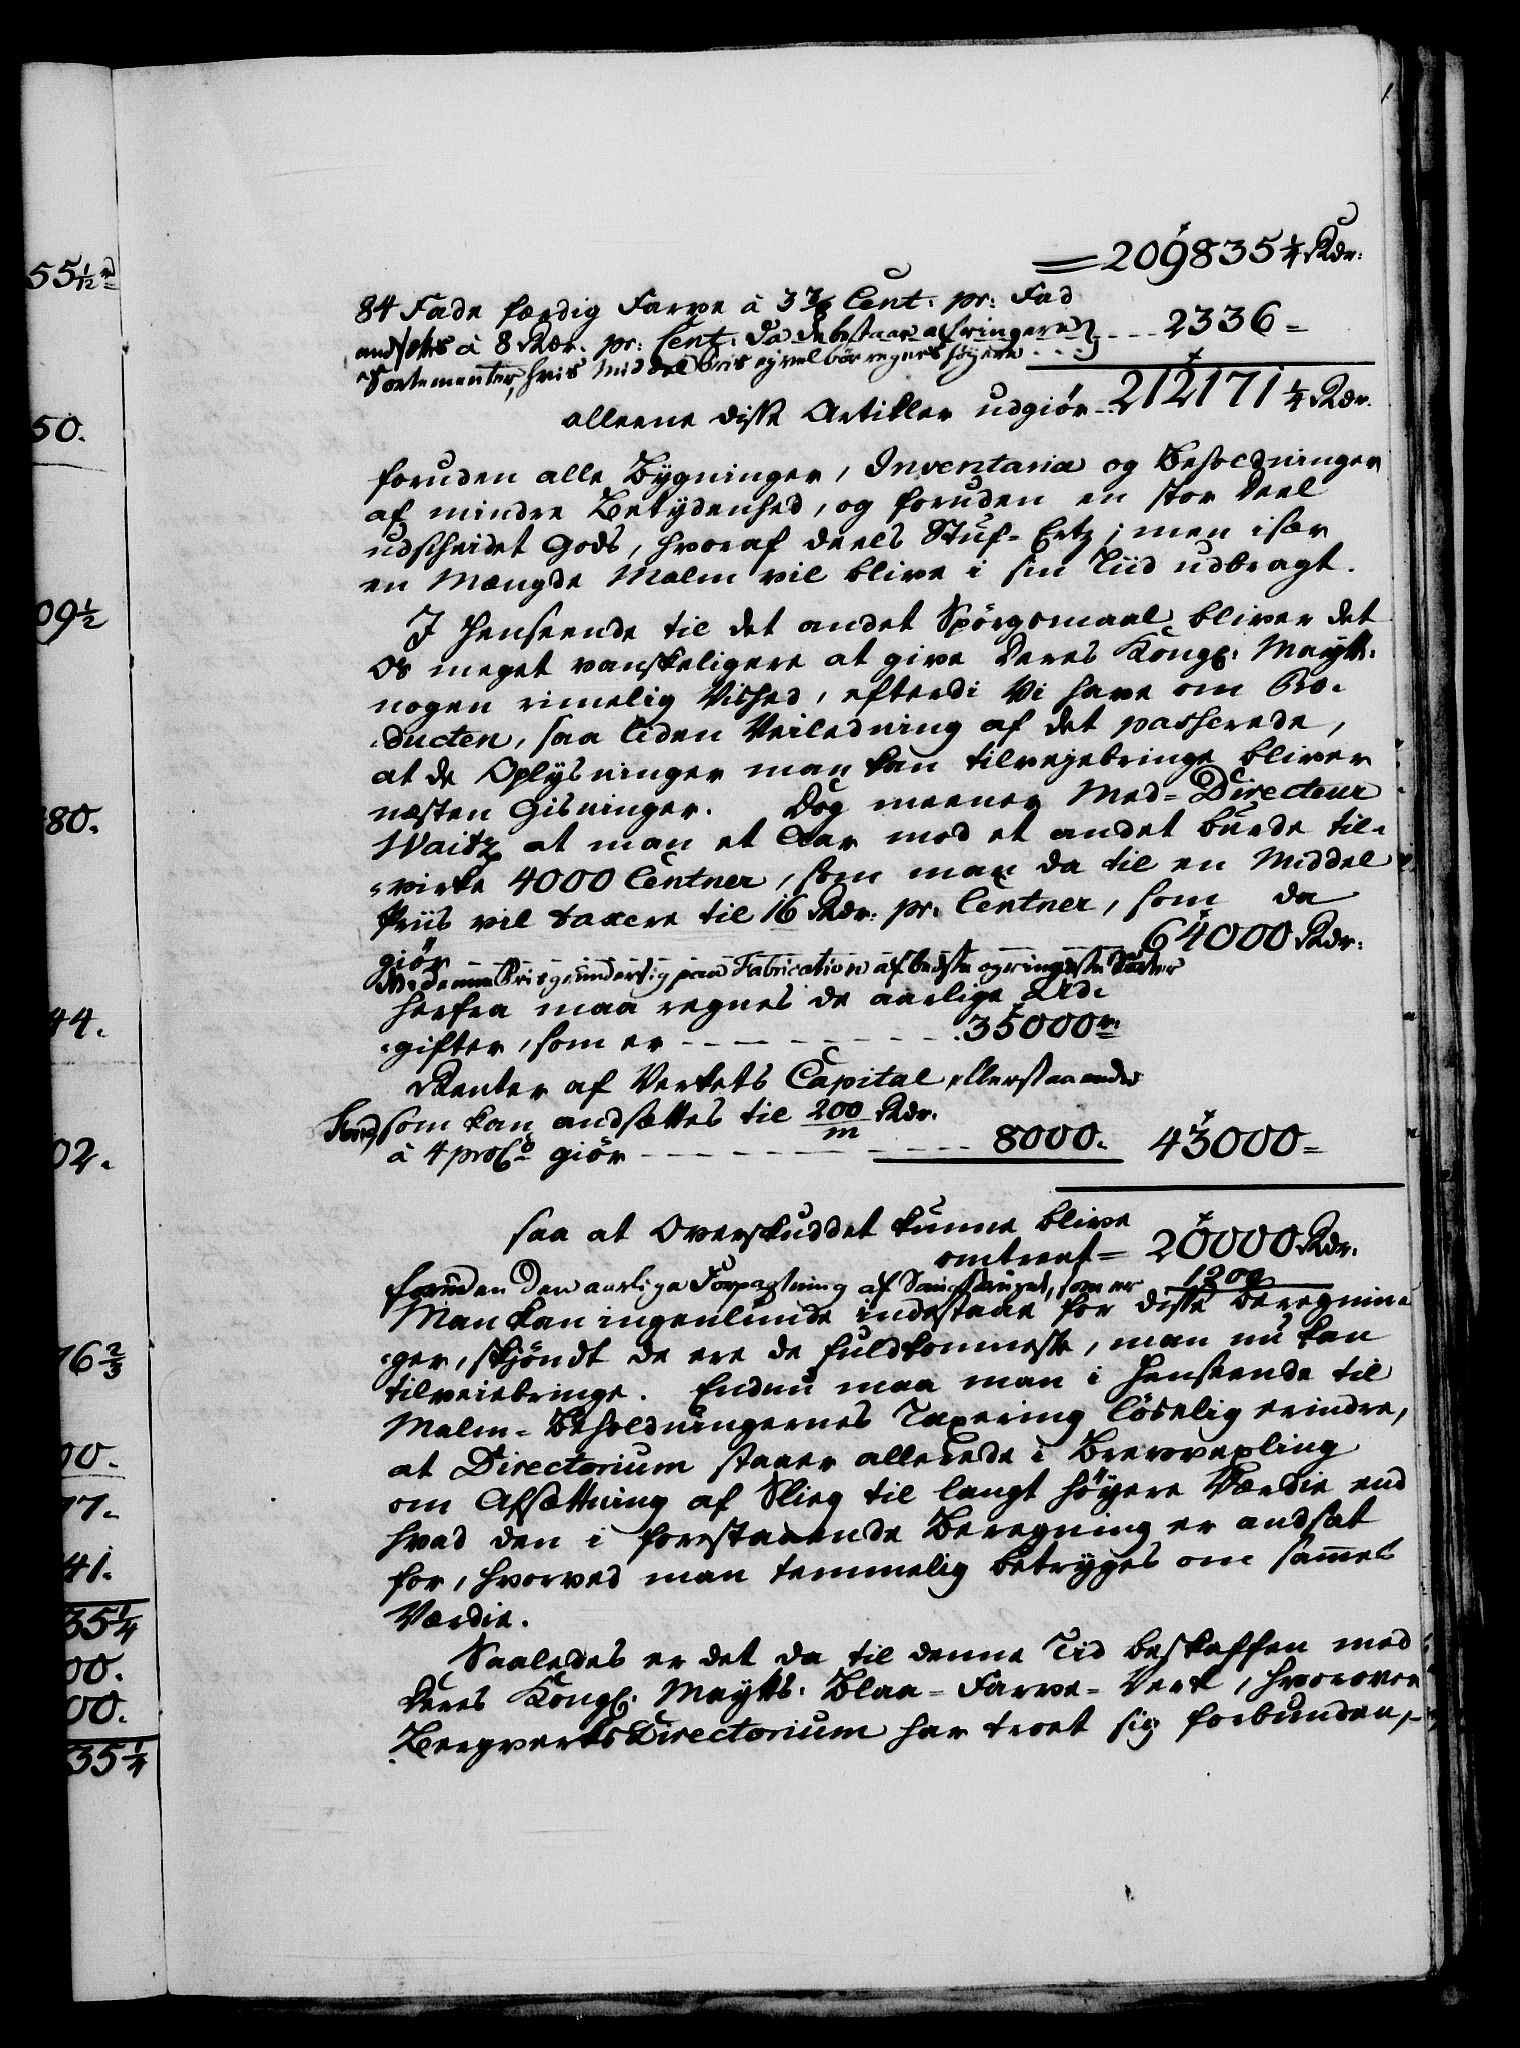 55 1/12 rd
50.
09 1/2
80.
44.
02.
76 2/3
00.
77.
41.
35 1/4
00.
00.
35 1/4
= 209835 1/4 Rdr:
84 Fade færdig Farve à 3 3/8 Cent: pr: Fad
andsettes à 8 Rdr. pr: Cent: da de bestaar af ringere } - - - 2336 =
Sortementer, hvis Middel Pris ej vel bör regnes höyere - - -
alleene disse Artikler udgiör - 212171 1/4 Rdr.
foruden alle Bygninger, Inventaria og Beholdninger
af mindre Betydenhed, og foruden en stor Deel
udscheidet Gods, hvoraf deels Stuf-Ertz; men især
en Mængde Malm vil blive i sin Tiid udbragt.
I Henseende til det andet Spörgsmaal bliver det
Os meget vanskeligere at give Deres Kongl: Maytt:
nogen rimelig Vished, efterdi Vi have om Pro-
ducten, saa liden Veiledning af det passerede,
at de Oplysninger man kan tilvejebringe bliver
næsten Gisninger. Dog meener Med-Directeur
Waitz at man et Aar med et andet burde til-
virke 4000 Centner, som man da til en Middel
Priis vil taxere til 16 Rdr: pr: Centner, som da
giör - - - - - - - - 64000 Rdr:
NB. denne Pris grunder sig paa Fabrication af bedste og ringeste Sorter
Herfra maa regnes de aarlige Ud-
gifter, som er - - - - - - - - 35000 r:
Renter af Verkets Capital eller staaende
Fond, som kan andsættes til 200/m Rdr.
à 4 proCto giör - - - - - - - - 8000. 43000 =
saa at Overskuddet kunne blive
omtrent = 20000 Rdr.
foruden den aarlige Forpagtning af Saugbruget, som er 1200
Man kan ingenlunde indestaae for disse Beregnin-
ger, skjöndt de ere de fuldkomneste, man nu kan
tilveiebringe. Endnu maa man i Henseende til
Malm-Beholdningernes Taxering löselig erindre,
at Directorium staaer allerede i Brevvexling
om Afsættning af Slieg til langt höyere Værdie end
hvad den i forestaaende Beregning er andsat
for, hvorved man temmelig betrygges om sammes
Værdie.
Saaledes er det da til denne Tid beskaffen med
Deres Kongl: Maytts: Blaa-Farve-Verk, hvorover
Bergverks Directorium har troet sig forbunden,